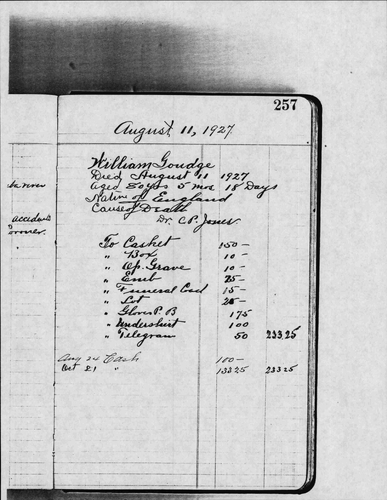 257
August 11, 1927
William Goudge
Died August 11 1927
Aged 80 yrs 5 mos 18 Days
Native of England
Cause of Death
Dr. C.P. Jones
accident
oroner.
To Casket 150—
" Box 10—
" Op. Grave 10—
" Emb 25—
" Funeral Coad 15—
" Lot 20—
" Gloves P. B 175
" Undershirt 100
" Telegram 50 233.25
Aug 24 Cash 100—
Oct 21 " 133 25 233 25